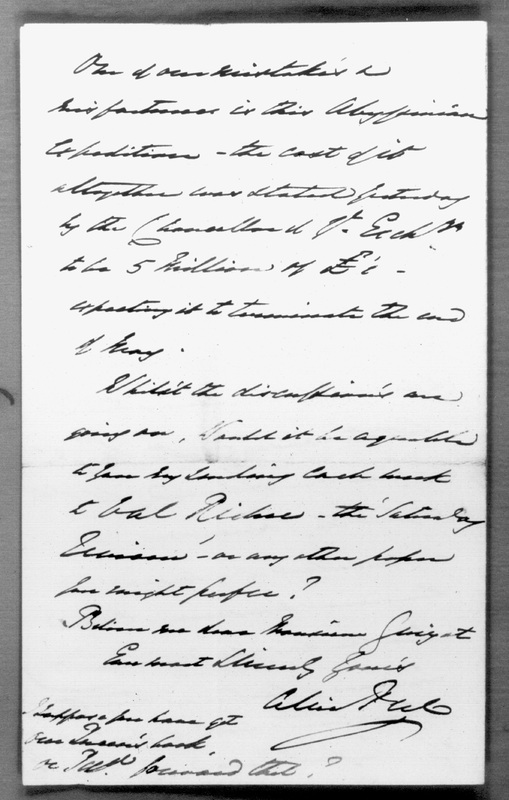 One of our mistakes &
misfortunes is this Abyssinian
Expedition - the cost of it
altogether was stated yesterday
by the Chancellor of Ye. Exchr
to be 5 Million of £'s -
expecting it to terminate the end
of May.
Whilst the discussion's are
going on, Would it be agreeable
to you my sending each week
to Val Richer - the 'Saturday
Review' - or any other paper
you might prefer?
Believe me dear Monsieur Guizot
Ever most Sincerely Yours
I suppose you have got
our Queen's book,
or shall forward that?